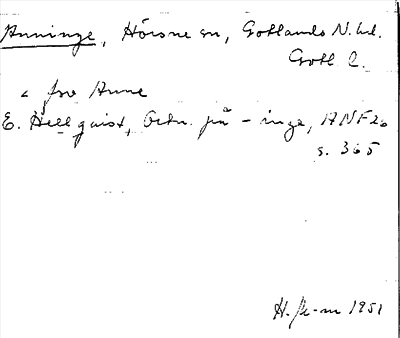 Anninge, Hörsne sn, Gotlands N. hd.
Gotl l.
< fvn Anne
E. Hellquist, Ortn. på -inge, ANF 20
s. 365
1951